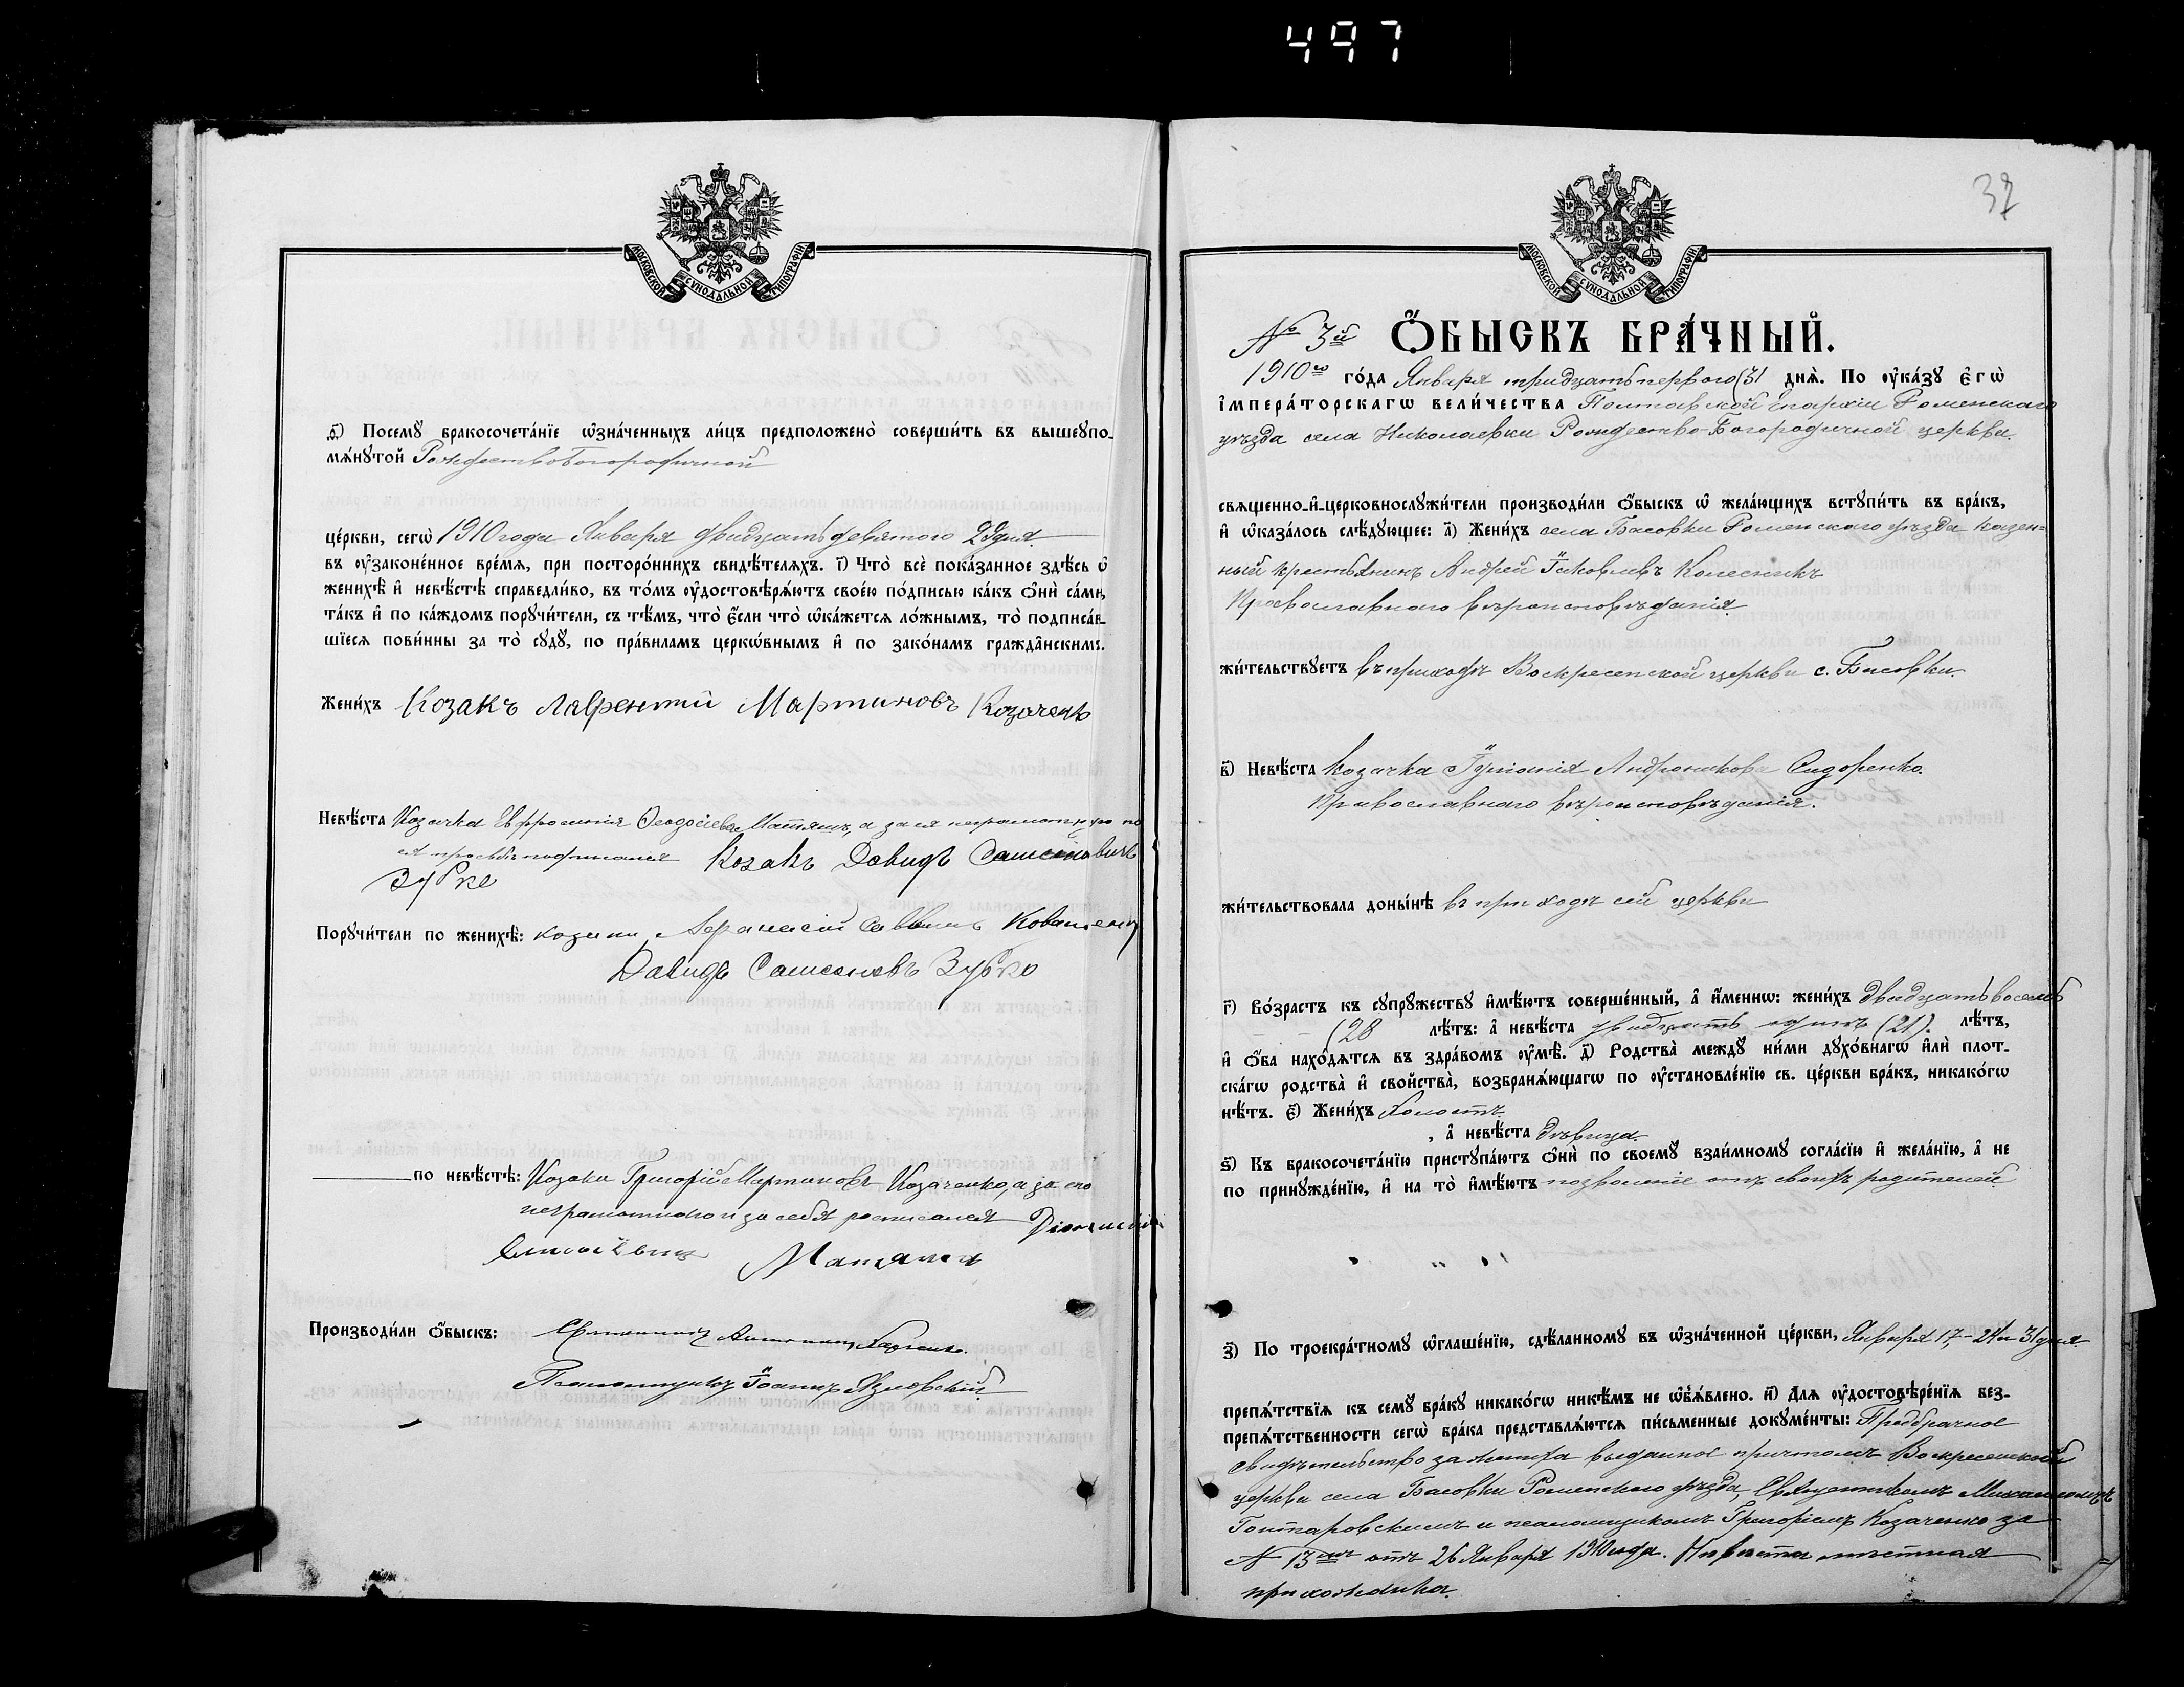 497
МОСКОВСКОЙ СѴНОДАЛЬНОЙ ТИПОГРАФІИ
ѳ҃) Посемꙋ̀ бракосочета́нїе ѡ҆зна́ченныхъ ли́цъ предположено̀ соверши́ть въ вышеꙋпо-
мѧ́нꙋтой Рождество Богородичной
це́ркви, сегѡ̀ 1910 года Января двадцать девятого 29 дня
въ ᲂу҆законе́нное вре́мѧ, при посторо́ннихъ свидѣ́телѧхъ. і҃) Что̀ всѐ пока́занное здѣ́сь ѡ҆
женихѣ̀ и҆ невѣ́стѣ справедли́во, въ то́мъ ᲂу҆достовѣрѧ́ютъ свое́ю по́дписью ка́къ ѻ҆нѝ са́ми,
та́къ и҆ по ка́ждомъ порꙋчи́тели, съ тѣ́мъ, что̀ є҆́сли что̀ ѡ҆ка́жетсѧ ло́жнымъ, то̀ подписа́в-
шїесѧ пови́нны за то̀ сꙋдꙋ̀, по пра́виламъ церкѡ́внымъ и҆ по зако́намъ гражда̂нскимъ.
Жени́хъ Козакъ Лаврентій Мартиновъ Козаченко
Невѣ́ста Козачка Евфросинія Ѳеодосіева Матяшъ, а за ея неграмотную по
ея просьбѣ подписался Козакъ Давидъ Самсоновичъ
Зубко
Порꙋчи́тели по женихѣ̀: козаки, Аѳанасій Саввинъ
Давидъ Самсоновъ Зубко
по невѣ́стѣ: Козаки Григорій Мартиновъ Козаченко, а за его
неграмотного и за себя росписался Діонисій
Матяшъ
Производи́ли ѻ҆́быскъ: Священникъ
Псаломщикъ Іоаннъ Язловскій
37
МОСКОВСКОЙ СѴНОДАЛЬНОЙ ТИПОГРАФІИ
№ 3й Ѻ҆́БЫСКЪ БРА́ЧНЫЙ.
1910го го́да Января тридцать первого (31 днѧ̀. По ᲂу҆ка́зꙋ є҆гѡ̀
і҆мпера́торскагѡ вели́чества Полтавской Епархіи Роменскаго
уѣзда села Николаевки Рождество-Богородичной церкви.
свѧщенно-и҆-церковнослꙋжи́тели производи́ли ѻ҆́быскъ ѡ҆ жела́ющихъ встꙋпи́ть въ бра́къ,
и҆ ѡ҆каза́лось слѣ́дꙋющее: а҃) Жени́хъ села Басовки Роменскаго уѣзда казен=
ный крестьянинъ Андрей Іаковлевъ Колесникъ
Православнаго вѣроисповѣданія
жи́тельствꙋетъ въ приходѣ Воскресенской церкви с. Басовки.
в҃) Невѣ́ста козачка Іуліанія Андроникова Сидоренко.
Православнаго вѣроисповѣданія.
жи́тельствовала доны́нѣ въ приходѣ сей церкви
г҃) Во́зрастъ къ сꙋпрꙋ́жествꙋ и҆мѣ́ютъ соверше́нный, а҆ и҆́меннѡ: жени́хъ двадцать восемь
(28 лѣ́тъ: а҆ невѣ́ста двадцать одинъ (21). лѣ́тъ,
и҆ ѻ҆́ба нахо́дѧтсѧ въ здра́вомъ ᲂу҆мѣ̀. д҃) Родства̀ междꙋ̀ ни́ми дꙋхо́внагѡ и҆лѝ плот-
ска́гѡ родства̀ и҆ сво́йства, возбранѧ́ющагѡ по ᲂу҆становле́нїю св. це́ркви бра́къ, никако́гѡ
нѣ́тъ. є҃) Жени́хъ холостъ
, а҆ невѣ́ста дѣвица
ѕ҃) Къ бракосочета́нїю пристꙋпа́ютъ ѻ҆нѝ по своемꙋ̀ взаи́мномꙋ согла́сїю и҆ жела́нїю, а҆ не
по принꙋжде́нїю, и҆ на то̀ и҆мѣ́ютъ позволеніе отъ своихъ родителей
з҃) По троекра́тномꙋ ѡ҆глаше́нїю, сдѣ́ланномꙋ въ ѡ҆зна́ченной це́ркви, Января 17, – 24 и 31 дня
препѧ́тствїѧ къ семꙋ̀ бра́кꙋ никако́гѡ никѣ́мъ не ѡ҆б̾ѧ́влено. и҃) Длѧ ᲂу҆достовѣре́нїѧ без-
препѧ́тственности сегѡ̀ бра́ка представлѧ́ютсѧ пи́сьменные докꙋме́нты: Предбрачное
свидѣтельство за жениха выданное причтомъ Воскресенской
церкви села Басовки Роменскаго уѣзда, Священникомъ Михаиломъ
Гонтаровскимъ и псаломщикомъ Григоріемъ Козаченко за
№ 13мъ отъ 26 Января 1910 года. Невѣста мѣстная
прихожанка.